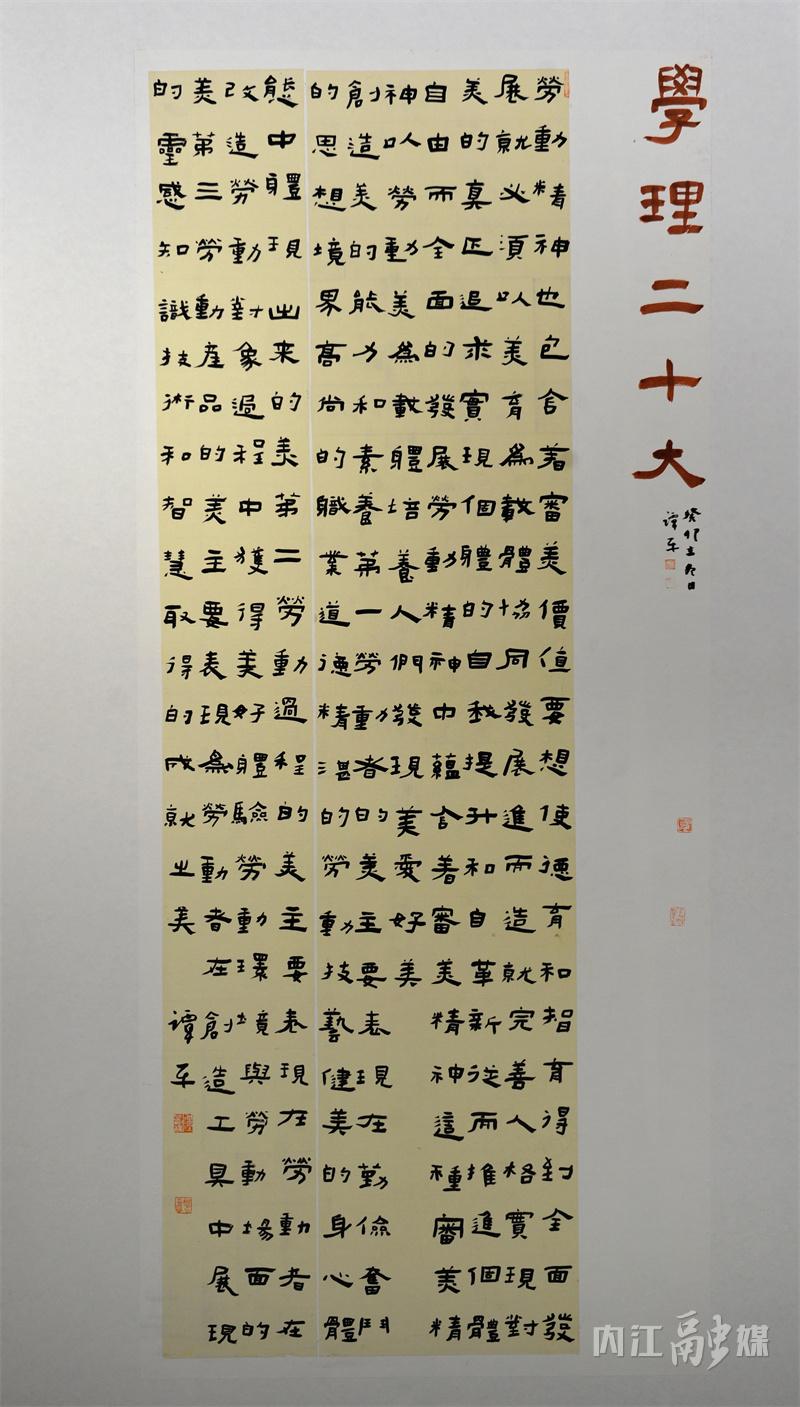 學理二十大
癸卯立冬日
譚
勞動精神也包含著審美價值要想使德育和智育得到全面發
展就必須以美育為載體協同發展進而造就完善人格實現對
美的真正追求實現個體的自我提升和自革新從而推進個體
自由而全面的發展勞動精神中蘊含着審美精神這種審美精
神以勞動美為載體培養人們發現美愛好美
創造美的能力和素養第一勞動者的美主要表現在勤儉奮鬥
的思想境界高尚的職業道德精湛的勞動技藝健美的身心體
態中體現出來的美第二勞動過程的美主要表現在勞動者在
改造勞動對象過程中獲得美好體驗勞動環境與勞動場面的
美第三勞動產品的美主要表現為勞動者在創造工具中展現
的靈感知識技術和智慧取得的成就之美 譚
内江融媒